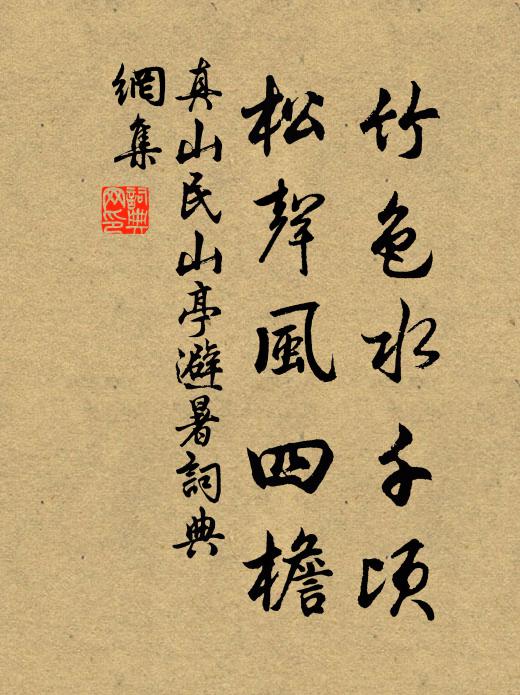 竹色水千頃
松聲風四檐
真山民山亭避暑詞典
網集
詞典網印